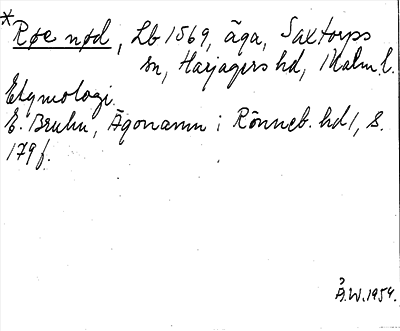 * Røe nød, Lb 1569, äga, Saxtorps
sn, Harjagers hd, Malm. l.
Etymologi.
E. Bruhn, Ägonamn i Rönneb. hd 1, s.
179 f.
Å.W. 1954.